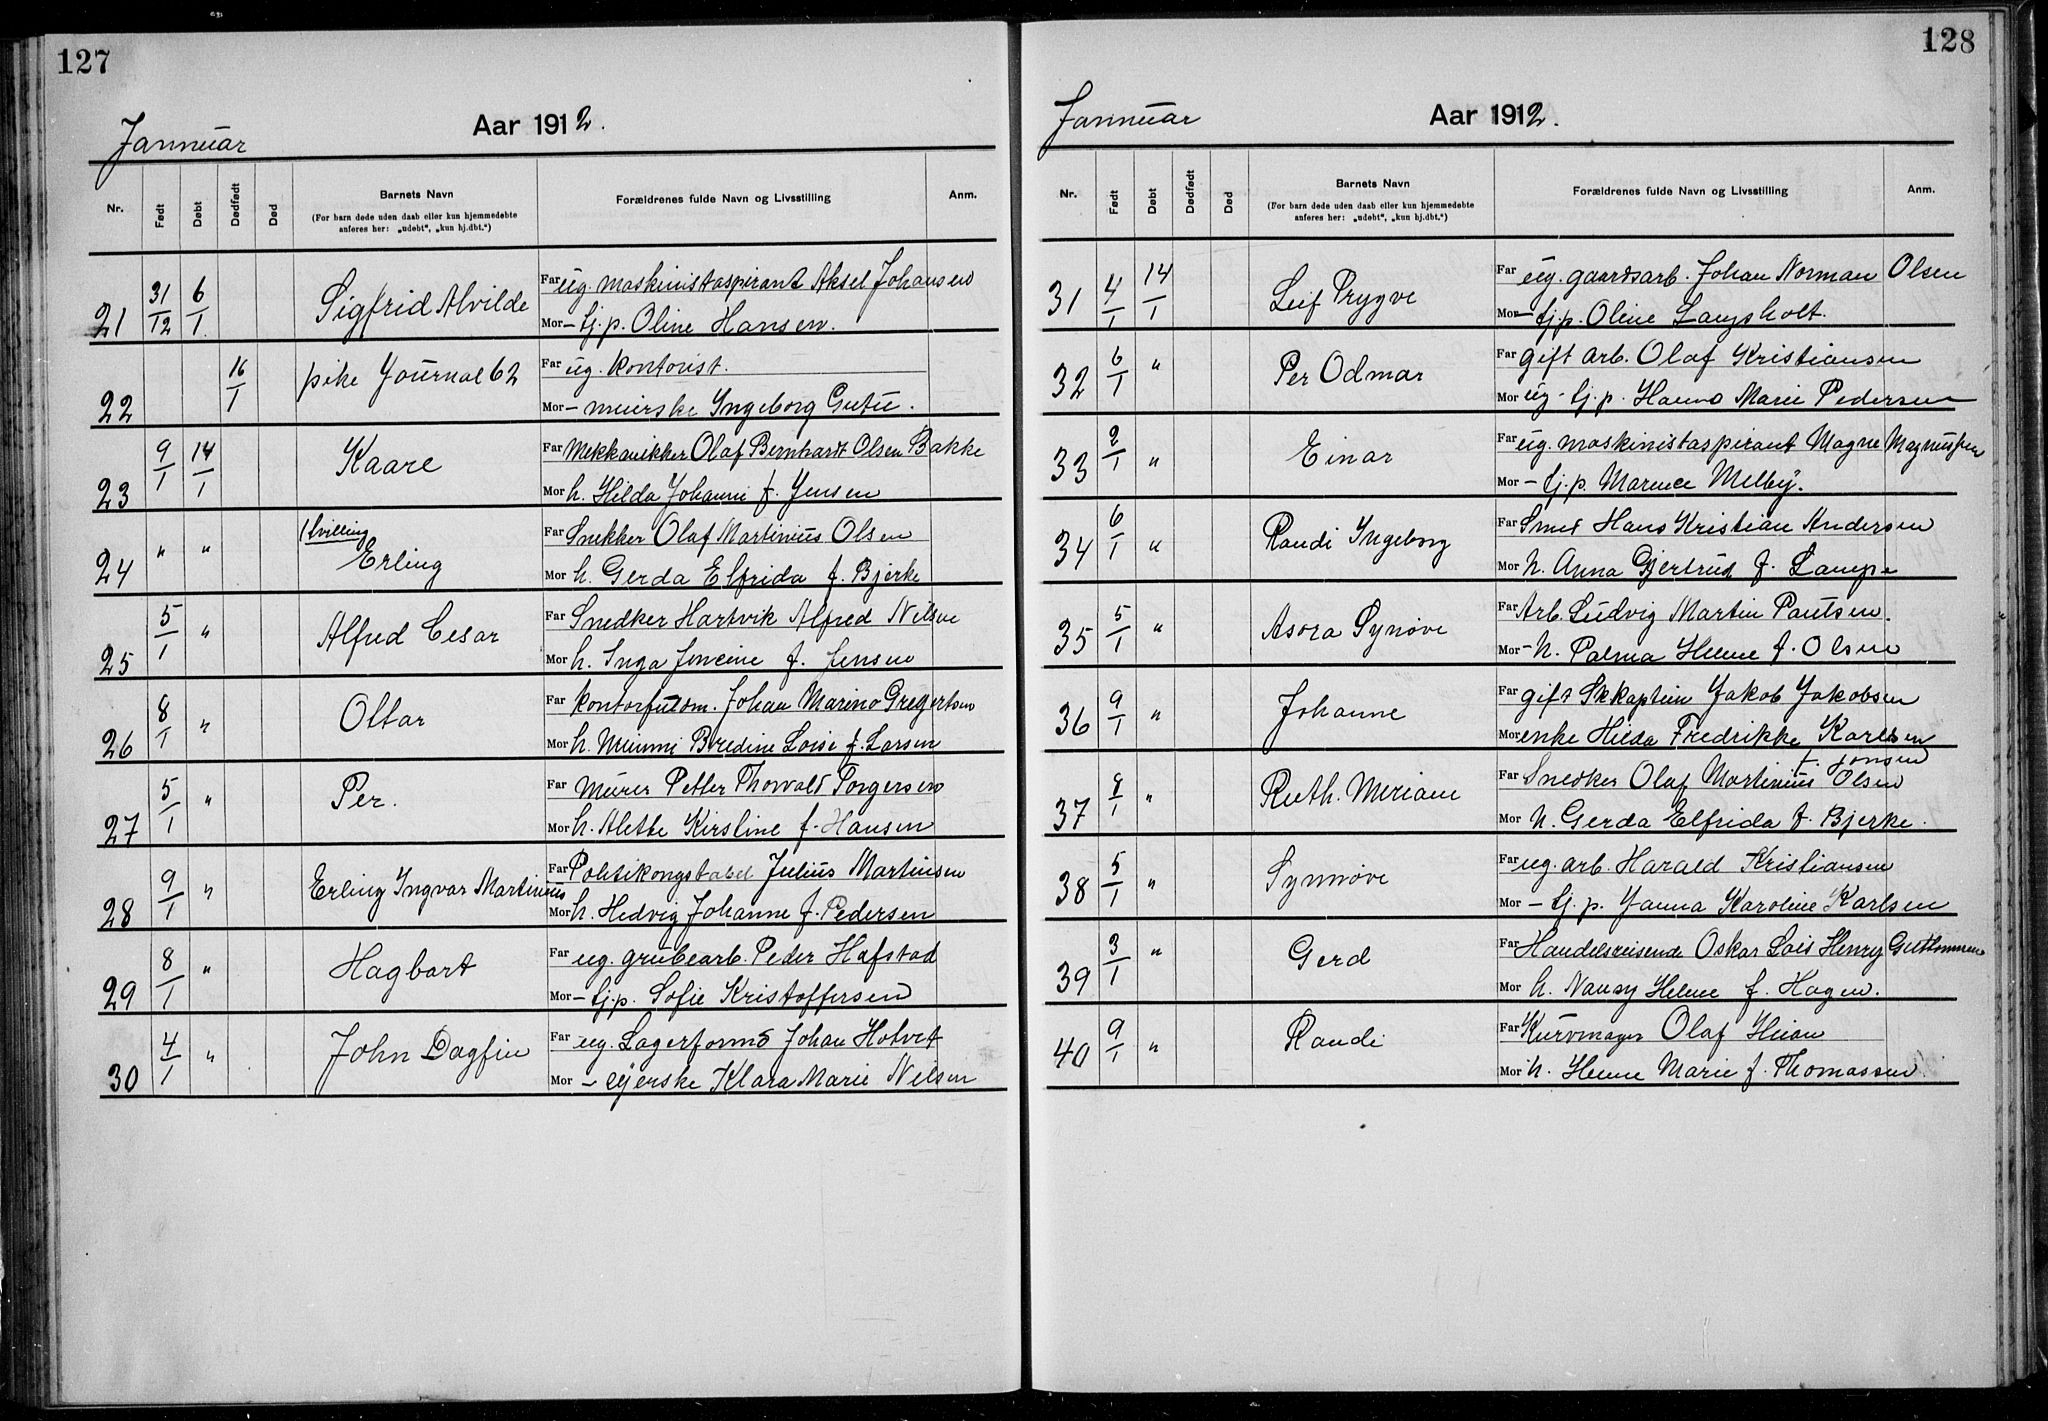 127
Januar
Aar 1912.
Nr. Født Døbt Dødfødt Død Barnets Navn Forældrenes fulde Navn og Livsstilling Anm.
(For barn døde uden daab eller kun hjemmedøbte
anføres her: „udøbt“, „kun hj.dbt.“)
21 31/12 6/1 Sigfrid Alvilde Far ug. maskinistaspirant Aksel Johansen
Mor – tj.p. Oline Hansen.
22 16/1 pike Journal 62 Far ug. kontorist.
Mor – meierske Ingeborg
23 9/1 14/1 Kaare Far Mekkanikker Olaf Bernhardt Olsen Bakke
Mor h. Hilda Johanne f. Jensen
24 " " (tvilling) Erling Far Snekker Olaf Martinius Olsen
Mor h. Gerda Elfrida f. Bjerke
25 5/1 " Alfred Cesar Far Snedker Hartvik Alfred Nilsen
Mor h. Inga f. Jensen
26 8/1 " Ottar Far kontorfuldm. Johan Marino Gregertsen
Mor h. Minmi Bredine Loise f. Larsen
27 5/1 " Per. Far Murer Petter Thorvald Torgersen
Mor h. Alette Kirstine f. Hansen
28 9/1 " Erling Ingvar Martinius Far Politikongstabel Julius Martinsen
Mor h. Hedvig Johanne f. Pedersen
29 8/1 " Hagbart Far ug. grubearb. Peder Hafstad
Mor – tj.p. Sofie Kristoffersen
30 4/1 " John Dagfin Far ug. Lagerformd Johan Hotvet
Mor – syerske Klara Marie Nilsen
128
Januar
Aar 1912.
Nr. Født Døbt Dødfødt Død Barnets Navn Forældrenes fulde Navn og Livsstilling Anm.
(For barn døde uden daab eller kun hjemmedøbte
anføres her: „udøbt“, „kun hj.dbt.“)
31 4/1 14/1 Leif Trygve Far ug. gaardsarb. Johan Norman Olsen
Mor – tj.p. Oline Langsholt.
32 6/1 " Per Odmar Far gift arb. Olaf Kristiansen
Mor ug. tj.p. Hanna Marie Pedersen
33 2/1 " Einar Far ug. maskinistaspirant Magne Magnussen
Mor – tj.p. Marence Melby.
34 6/1 " Randi Ingeborg Far Smed Hans Kristian Andersen
Mor h. Anna Gjertrud f. Lampe
35 5/1 " Asora Synøve Far Arb. Ludvig Martin Paulsen.
Mor – h. Palma Helene f. Olsen
36 9/1 " Johanne Far gift Skkaptein Jakob Jakobsen
Mor enke Hilda Fredrikke Karlsen
f. Jonsen
37 8/1 " Ruth. Miriam Far Snedker Olaf Martinius Olsen
Mor h. Gerda Elfrida f. Bjerke.
38 5/1 " Synnøve Far ug. arb. Harald Kristiansen
Mor – tj.p. Janna Karoline Karlsen
39 3/1 " Gerd Far Handelsreisende Oskar Lois Henry Guttormsen
Mor h. Nansy Helene f. Hagen.
40 9/1 " Randi Far Kurvmager Olaf Heian
Mor h. Helene Marie f. Thomassen.